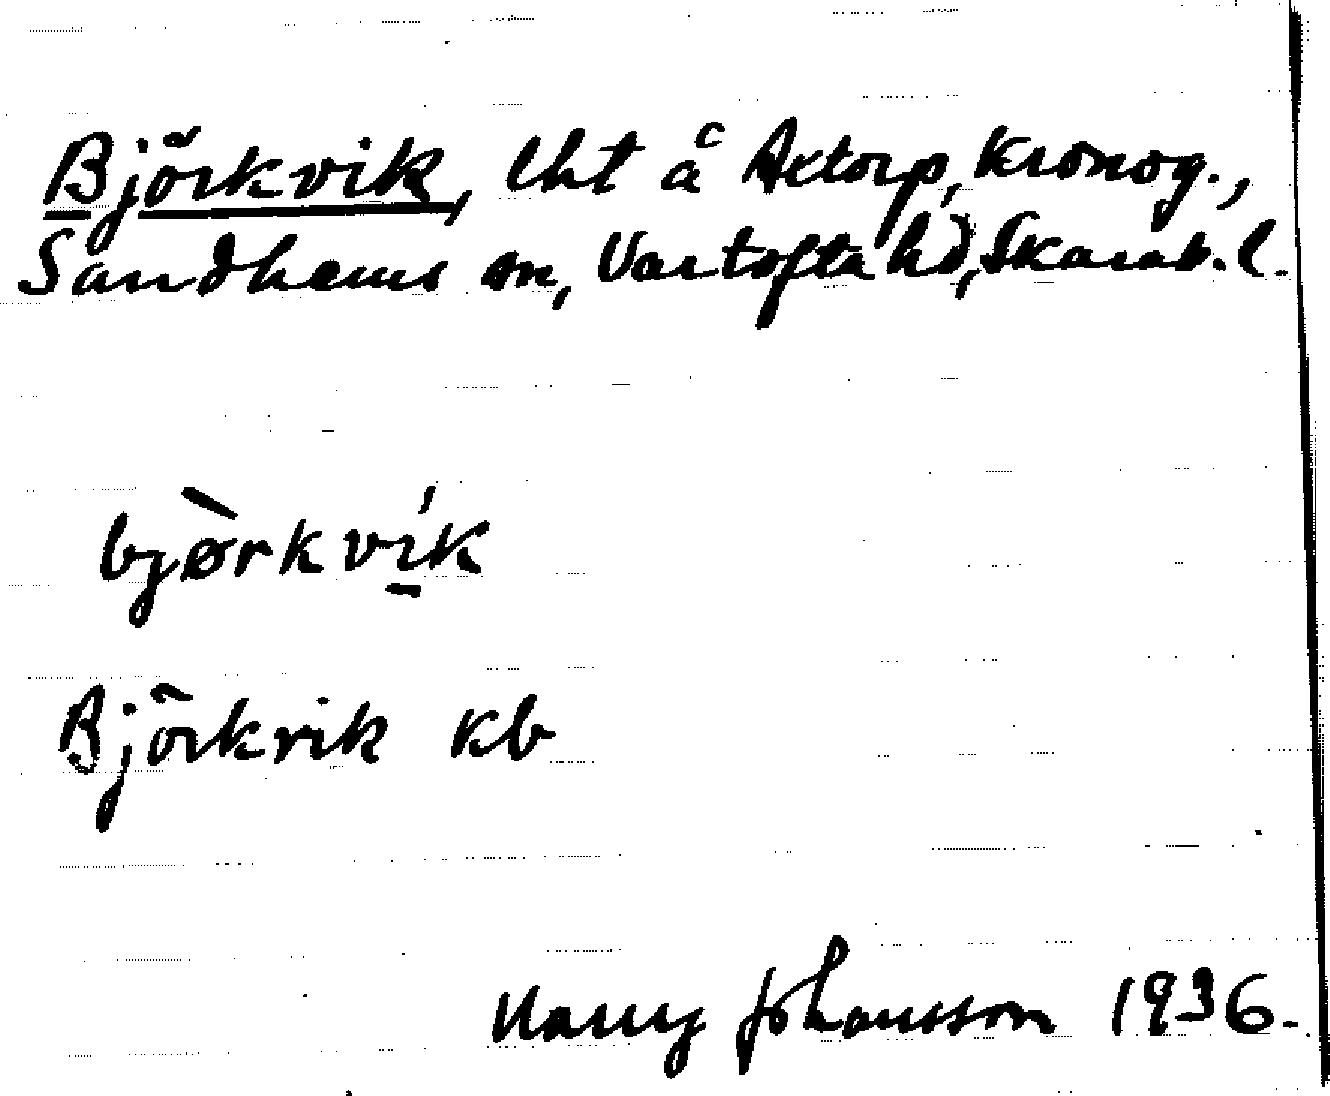 Björkvik, lht å Axtorp, Kronog.,
Sandhems sn, Vartofta hd, Skarab. l.
bjørkvik
Björkvik kb
Harry Johansson 1936.